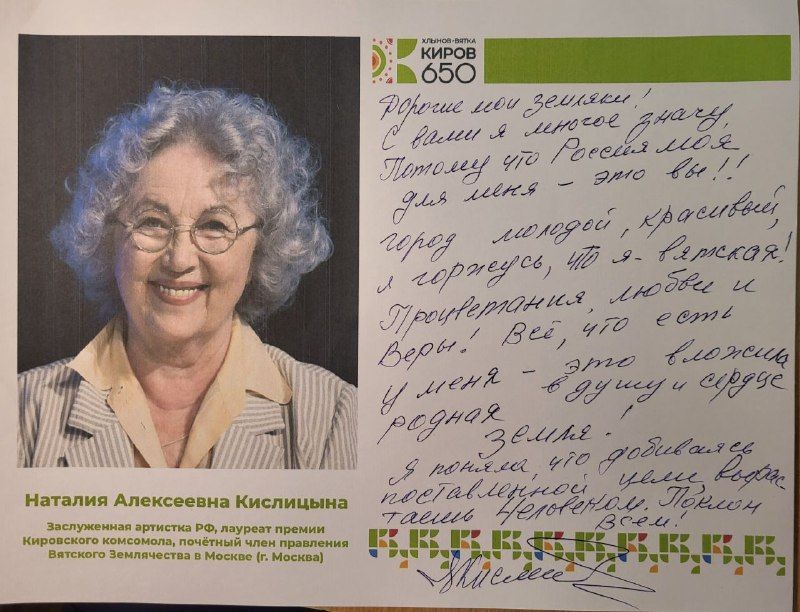 ХЛЫНОВ-ВЯТКА
КИРОВ
650
Дорогие мои земляки!
С вами я многое значу,
Потому что Россия моя
для меня - это вы!!
город молодой, красивый,
я горжусь, что я - вятская!
Процветания, любви и
Веры! Всё, что есть
у меня - это вложила
в душу и сердце
родная
земля!
Я поняла, что добиваясь
поставленной цели, вырас
таешь Человеком. Поклон
Всем!
Наталия Алексеевна Кислицына
Заслуженная артистка РФ, лауреат премии
Кировского комсомола, почётный член правления
Вятского Землячества в Москве (г. Москва)